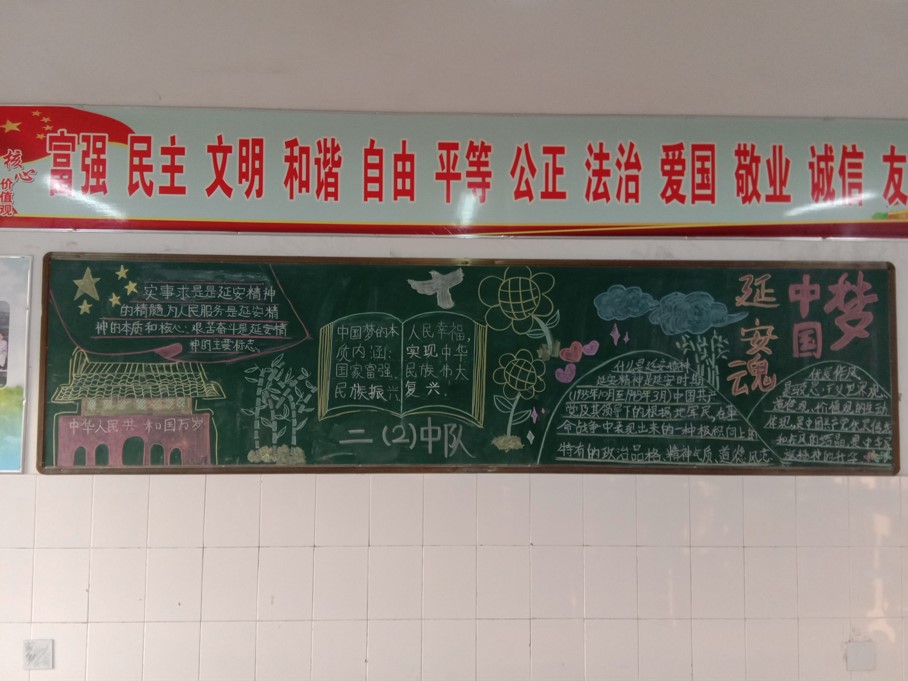 核心
价值观
富强 民主 文明 和谐 自由 平等 公正 法治 爱国 敬业 诚信 友
实事求是是延安精神
的精髓,为人民服务是延安精
神的本质和核心,艰苦奋斗是延安精
神的主要标志。
中华人民共和国万岁
中国梦的本
质内涵:
国家富强,
民族振兴
人民幸福,
实现中华
民族伟大
复兴.
二(2)中队
什么是延安精神
延安精神是延安时期
(1935年10月至1948年3月)中国共
党及其领导下的根据地军民在革
命战争中表现出来的一种积极向上的
特有的政治品格、精神气质、道德风志
延安魂
中国梦
优良作风